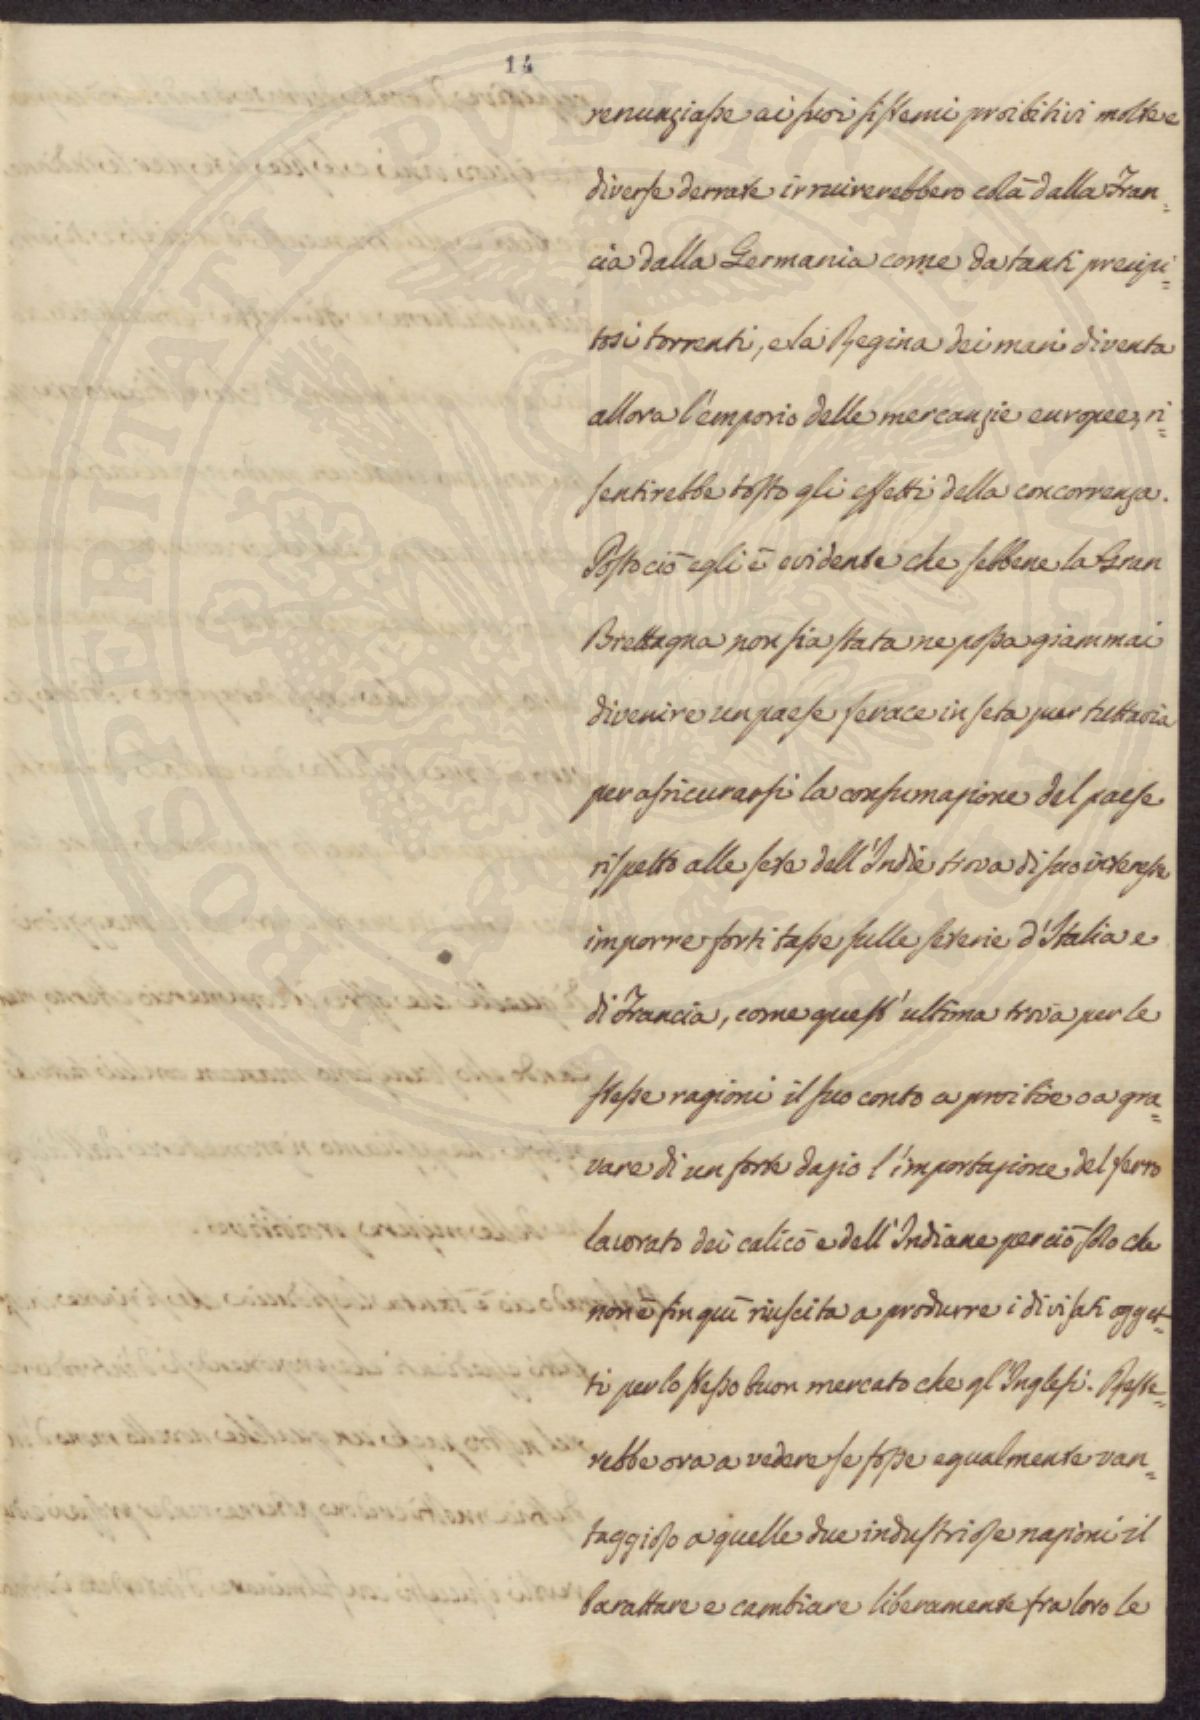 14
renunziasse ai suoi sistemi proibitivi molte e
diverse derrate irruirerebbero colà dalla Fran=
cia dalla Germania come da tanti precipi=
tosi torrenti, e la Regina dei mari diventa
allora l'emporio delle mercanzie europee, ri=
sentirebbe tosto gli effetti della concorrenza.
Posto ciò egli è evidente che sebbene la Gran
Brettagna non sia stata ne possa giammai
divenire un paese ferace in seta pur tuttavia
per assicurarsi la consumazione del paese
rispetto alle sete dell'Indie trova di suo interesse
imporre forti tasse sulle seterie d'Italia e
di Francia, come quest'ultima trova per le
stesse ragioni il suo conto a proibire o a gra=
vare di un forte dazio l'importazione del ferro
lavorato dei calicò e dell'Indiane perciò solo che
non è fin quì riuscita a produrre i divisati ogget=
ti per lo stesso buon mercato che gl'Inglesi. Reste=
rebbe ora a vedere se fosse egualmente van=
taggioso a quelle due industriose nazioni il
barattare e cambiare liberamente fra loro le
PROSPERITATI PUBLICAE AUGENDAE